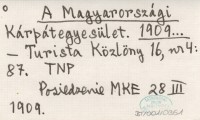 A Magyarországi
Kárpátegyesület. 1909...
- Turista Közlöny 16, nr 4:
87. TNP
Posiedzenie MKE 28 III
1909.